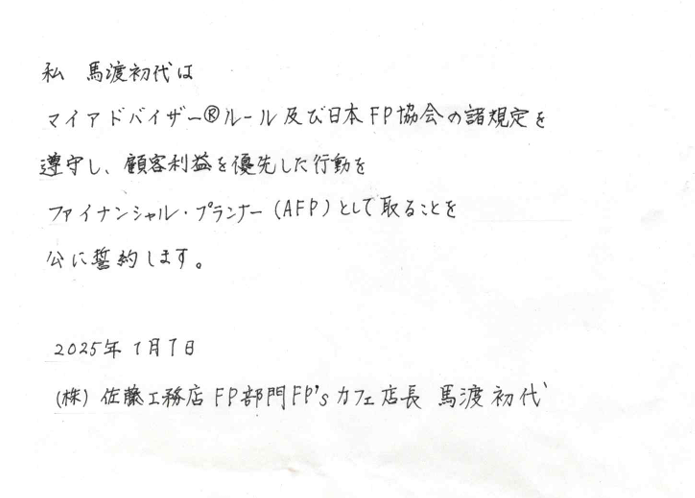 私 馬渡初代は
マイアドバイザー®ルール及び日本FP協会の諸規定を
遵守し、顧客利益を優先した行動を
ファイナンシャル・プランナー(AFP)として取ることを
公に誓約します。
2025年1月1日
(株)佐藤工務店FP部門FP'sカフェ店長 馬渡初代